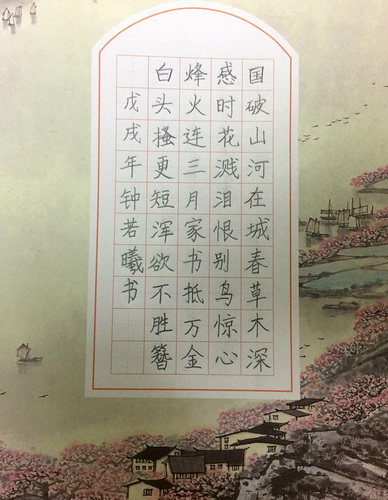 国破山河在城春草木深
感时花溅泪恨别鸟惊心
烽火连三月家书抵万金
白头搔更短浑欲不胜簪
戊戌年钟若曦书